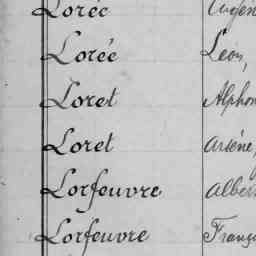 Lorée
Lorée Léon,
Loret Alphon
Loret Arsène,
Lorfeuvre Alber
Lorfeuvre Franç